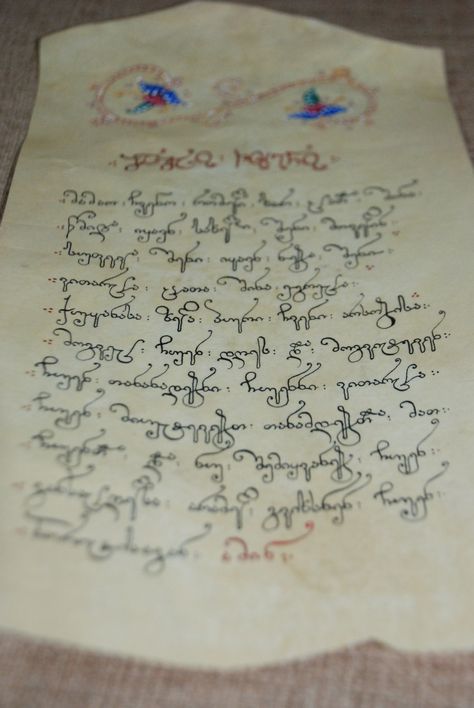 მამაო: ჩვენო: რომელი: ხარ: ცათა: შინა:
წმიდა: იყავნ: სახელი: შენი: მოვედინ:
სუფევა: შენი: იყავნ: ნება: შენი:
ვითარცა: ცათა: შინა: ეგრეცა:
ქუეყანასა: ზედა: პური: ჩვენი: არსობისა:
მოგვეც: ჩუენ: დღეს: და: მოგვიტევენ:
ჩუენ: თანანადებნი: ჩუენნი: ვითარცა:
ჩუენ: მიუტევებთ: თანამდებთა: მათ:
ჩუენთა: და: ნუ: შემიყვანებ: ჩუენ:
განსაცდელსა: არამედ: გვიხსნენ: ჩუენ:
ბოროტისაგან: ამინ: